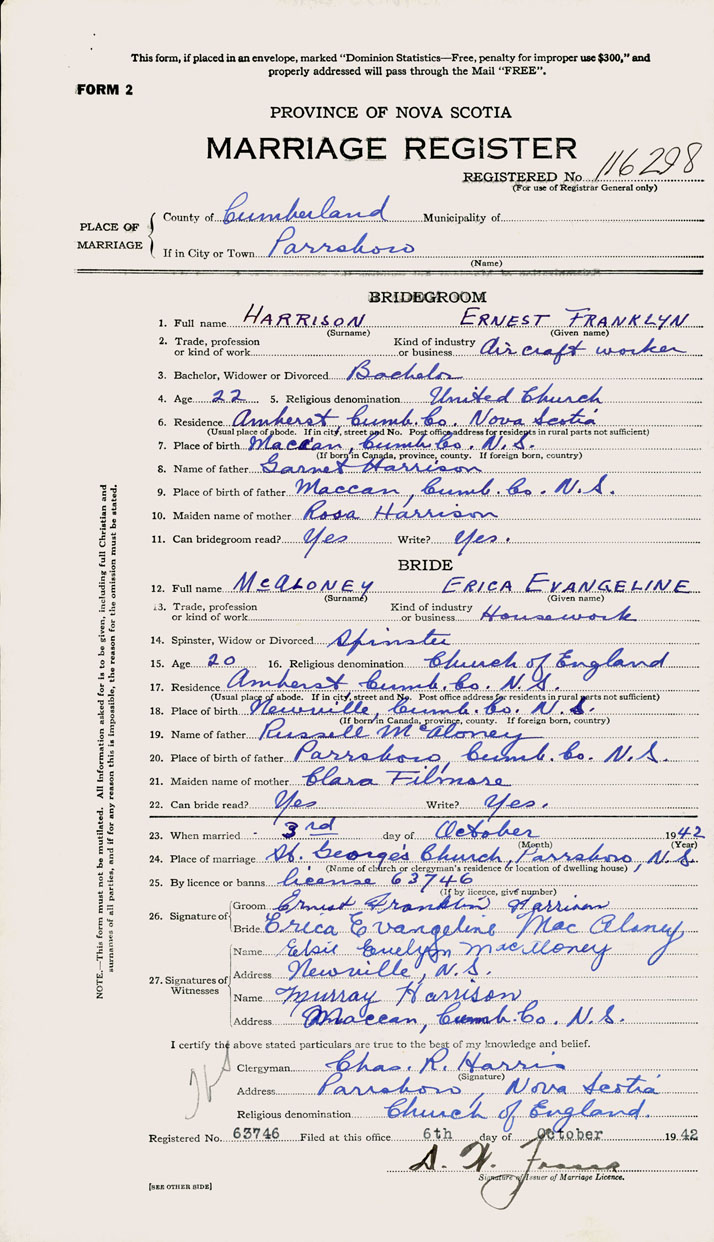 This form, if placed in an envelope, marked "Dominion Statistics—Free, penalty for improper use $300," and
properly addressed will pass through the Mail "FREE".
FORM 2
PROVINCE OF NOVA SCOTIA
MARRIAGE REGISTER
REGISTERED No. 116298
(For use of Registrar General only)
PLACE OF MARRIAGE
County of Cumberland Municipality of
If in City or Town Parrsboro
(Name)
BRIDEGROOM
1. Full name HARRISON ERNEST FRANKLYN
(Surname) (Given name)
2. Trade, profession or kind of work Kind of industry or business Aircraft worker
3. Bachelor, Widower or Divorced Bachelor
4. Age 22 5. Religious denomination United Church
6. Residence Amherst Cumb. Co. Nova Scotia
(Usual place of abode. If in city, street and No. Post office address for residents in rural parts not sufficient)
7. Place of birth Maccan, Cumb. Co. N.S.
(If born in Canada, province, county. If foreign born, country)
8. Name of father Garnet Harrison
9. Place of birth of father Maccan, Cumb. Co. N.S.
10. Maiden name of mother Rosa Harrison
11. Can bridegroom read? Yes Write? Yes.
BRIDE
12. Full name McALONEY ERICA EVANGELINE
(Surname) (Given name)
13. Trade, profession or kind of work Kind of industry or business Housework
14. Spinster, Widow or Divorced Spinster
15. Age 20 16. Religious denomination Church of England
17. Residence Amherst Cumb. Co. N.S.
(Usual place of abode. If in city, street and No. Post office address for residents in rural parts not sufficient)
18. Place of birth Newville, Cumb. Co. N.S.
(If born in Canada, province, county. If foreign born, country)
19. Name of father Russell McAloney
20. Place of birth of father Parrsboro, Cumb. Co. N.S.
21. Maiden name of mother Clara Filmore
22. Can bride read? Yes Write? Yes.
23. When married - 3rd day of October 1942
(Month) (Year)
24. Place of marriage St. George's Church, Parrsboro, N.S.
(Name of church or clergyman's residence or location of dwelling house)
25. By licence or banns license 63746
(If by licence, give number)
26. Signature of
Groom Ernest Franklin Harrison
Bride Erica Evangeline MacAloney
27. Signatures of Witnesses
Name Elsie Evelyn MacAloney
Address Newville, N.S.
Name Murray Harrison
Address Maccan, Cumb. Co. N.S.
I certify the above stated particulars are true to the best of my knowledge and belief.
Clergyman Chas. R. Harris
(Signature)
Address Parrsboro, Nova Scotia
Religious denomination Church of England.
Registered No. 63746 Filed at this office 6th day of October 1942
Signature of Issuer of Marriage Licence.
[SEE OTHER SIDE]
NOTE.—This form must not be mutilated. All information asked for is to be given, including full Christian and
surnames of all parties, and if for any reason this is impossible, the reason for the omission must be stated.